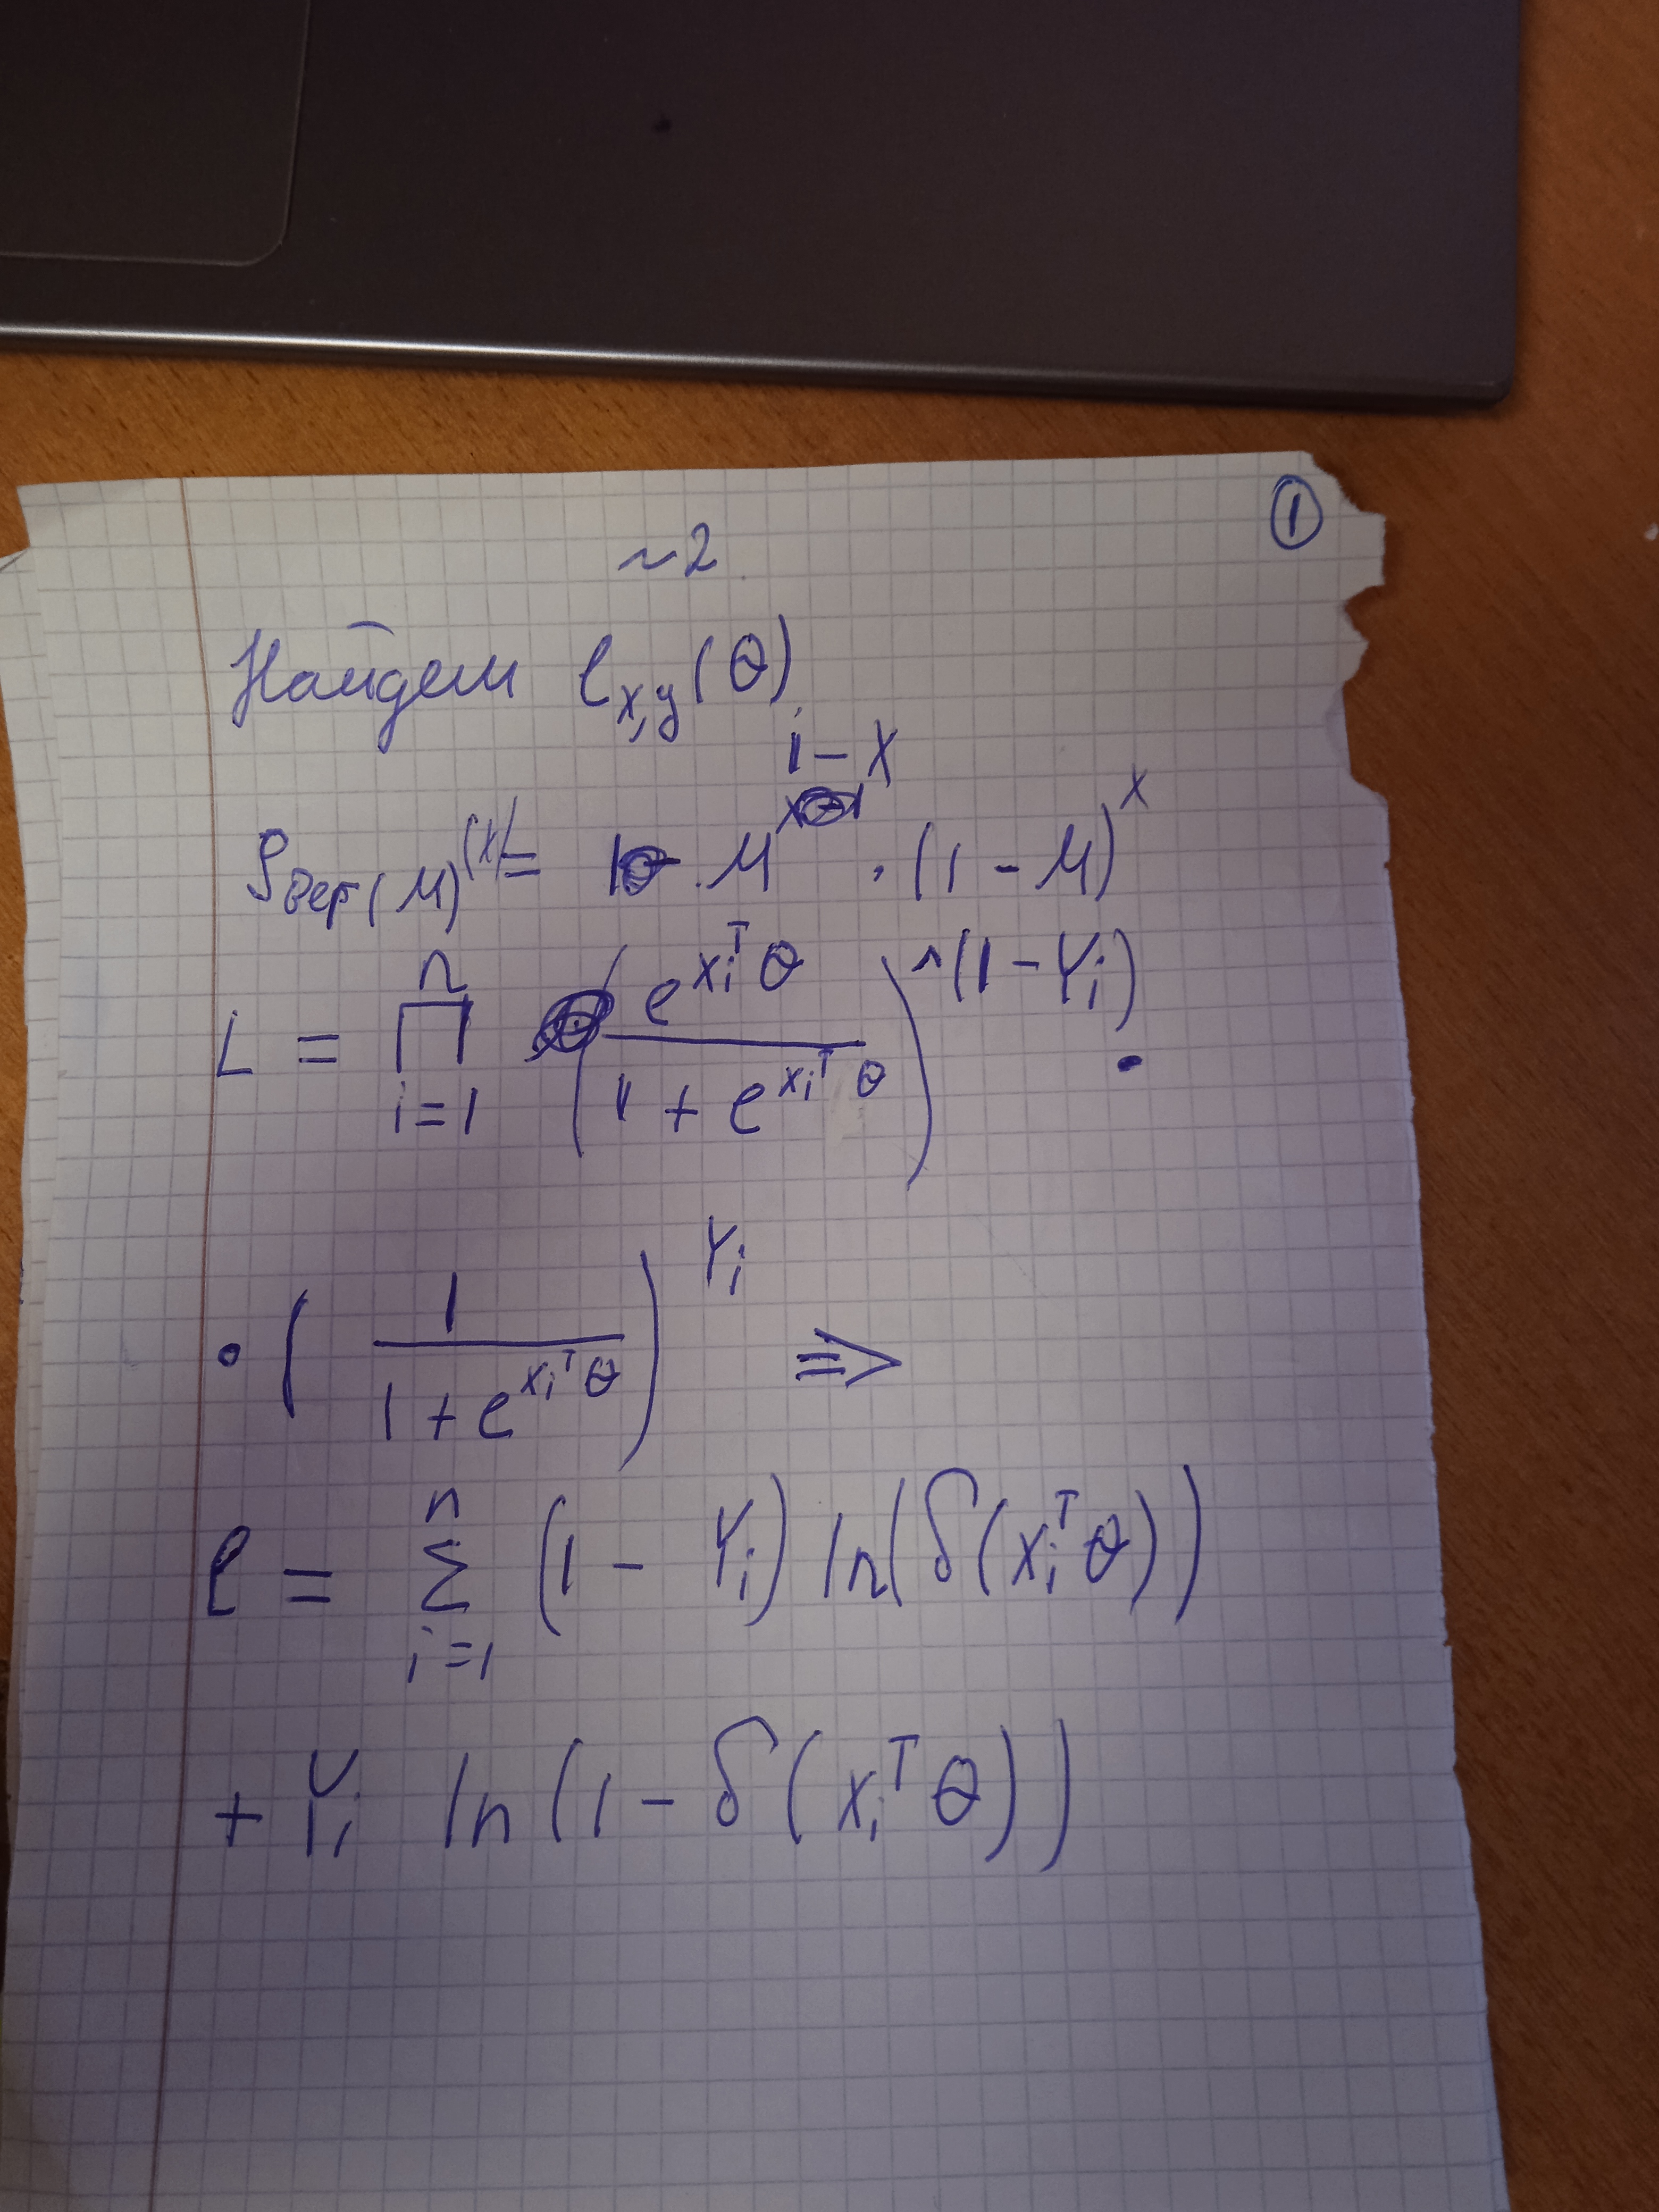 ①
~2
Найдем ℓ_{x,y}(θ)
ρ_{Bер(μ)}(x) = μ^{1-x} · (1 - μ)^x
L = ∏_{i=1}^{n} (e^{x_i^T θ} / (1 + e^{x_i^T θ}))^(1 - Y_i) ·
· (1 / (1 + e^{x_i^T θ}))^{Y_i} ⇒
ℓ = ∑_{i=1}^{n} (1 - Y_i) ln(δ(x_i^T θ))
+ Y_i ln(1 - δ(x_i^T θ))